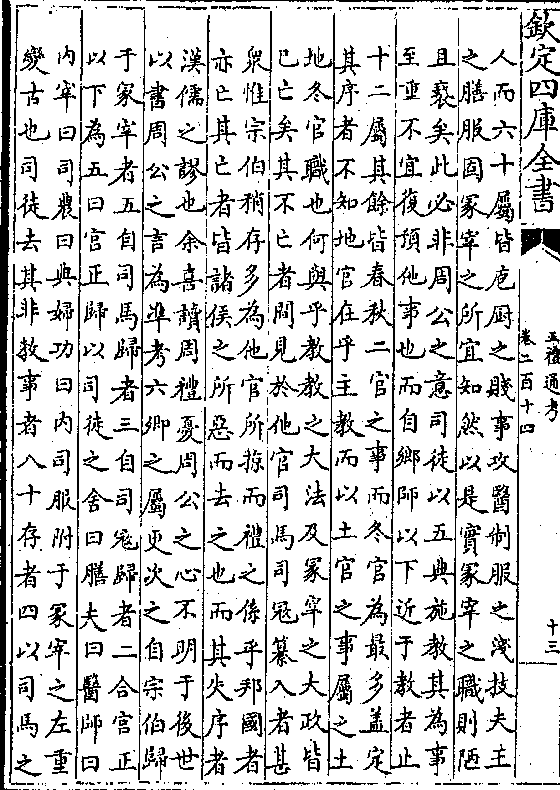 欽定四庫全書
五禮通考
卷二百十四
十三
人而六十屬皆庖厨之賤事攻醫制服之淺技夫王
之膳服固冢宰之所宜知然以是實冢宰之職則陋
且褻矣此必非周公之意司徒以五典施教其為事
至重不宜復預他事也而自鄉師以下近于教者止
十二屬其餘皆春秋二官之事而冬官為最多蓋定
其序者不知地官在乎主教而以土官之事屬之土
地冬官職也何與乎教教之大法及冢宰之大政皆
已亡矣其不亡者間見於他官司馬司冦纂入者甚
衆惟宗伯稍存多為他官所掠而禮之係乎邦國者
亦亡其亡者皆諸侯之所惡而去之也而其失序者
漢儒之謬也余喜讀周禮憂周公之心不明于後世
以書周公之言為凖考六卿之屬更次之自宗伯歸
于冢宰者五自司馬歸者三自司冦歸者二合宫正
以下為五曰宫正歸以司徒之舍曰膳夫曰醫師曰
内宰曰司農曰典婦功曰内司服附于冢宰之左重
變古也司徒去其非教事者八十存者四以司馬之